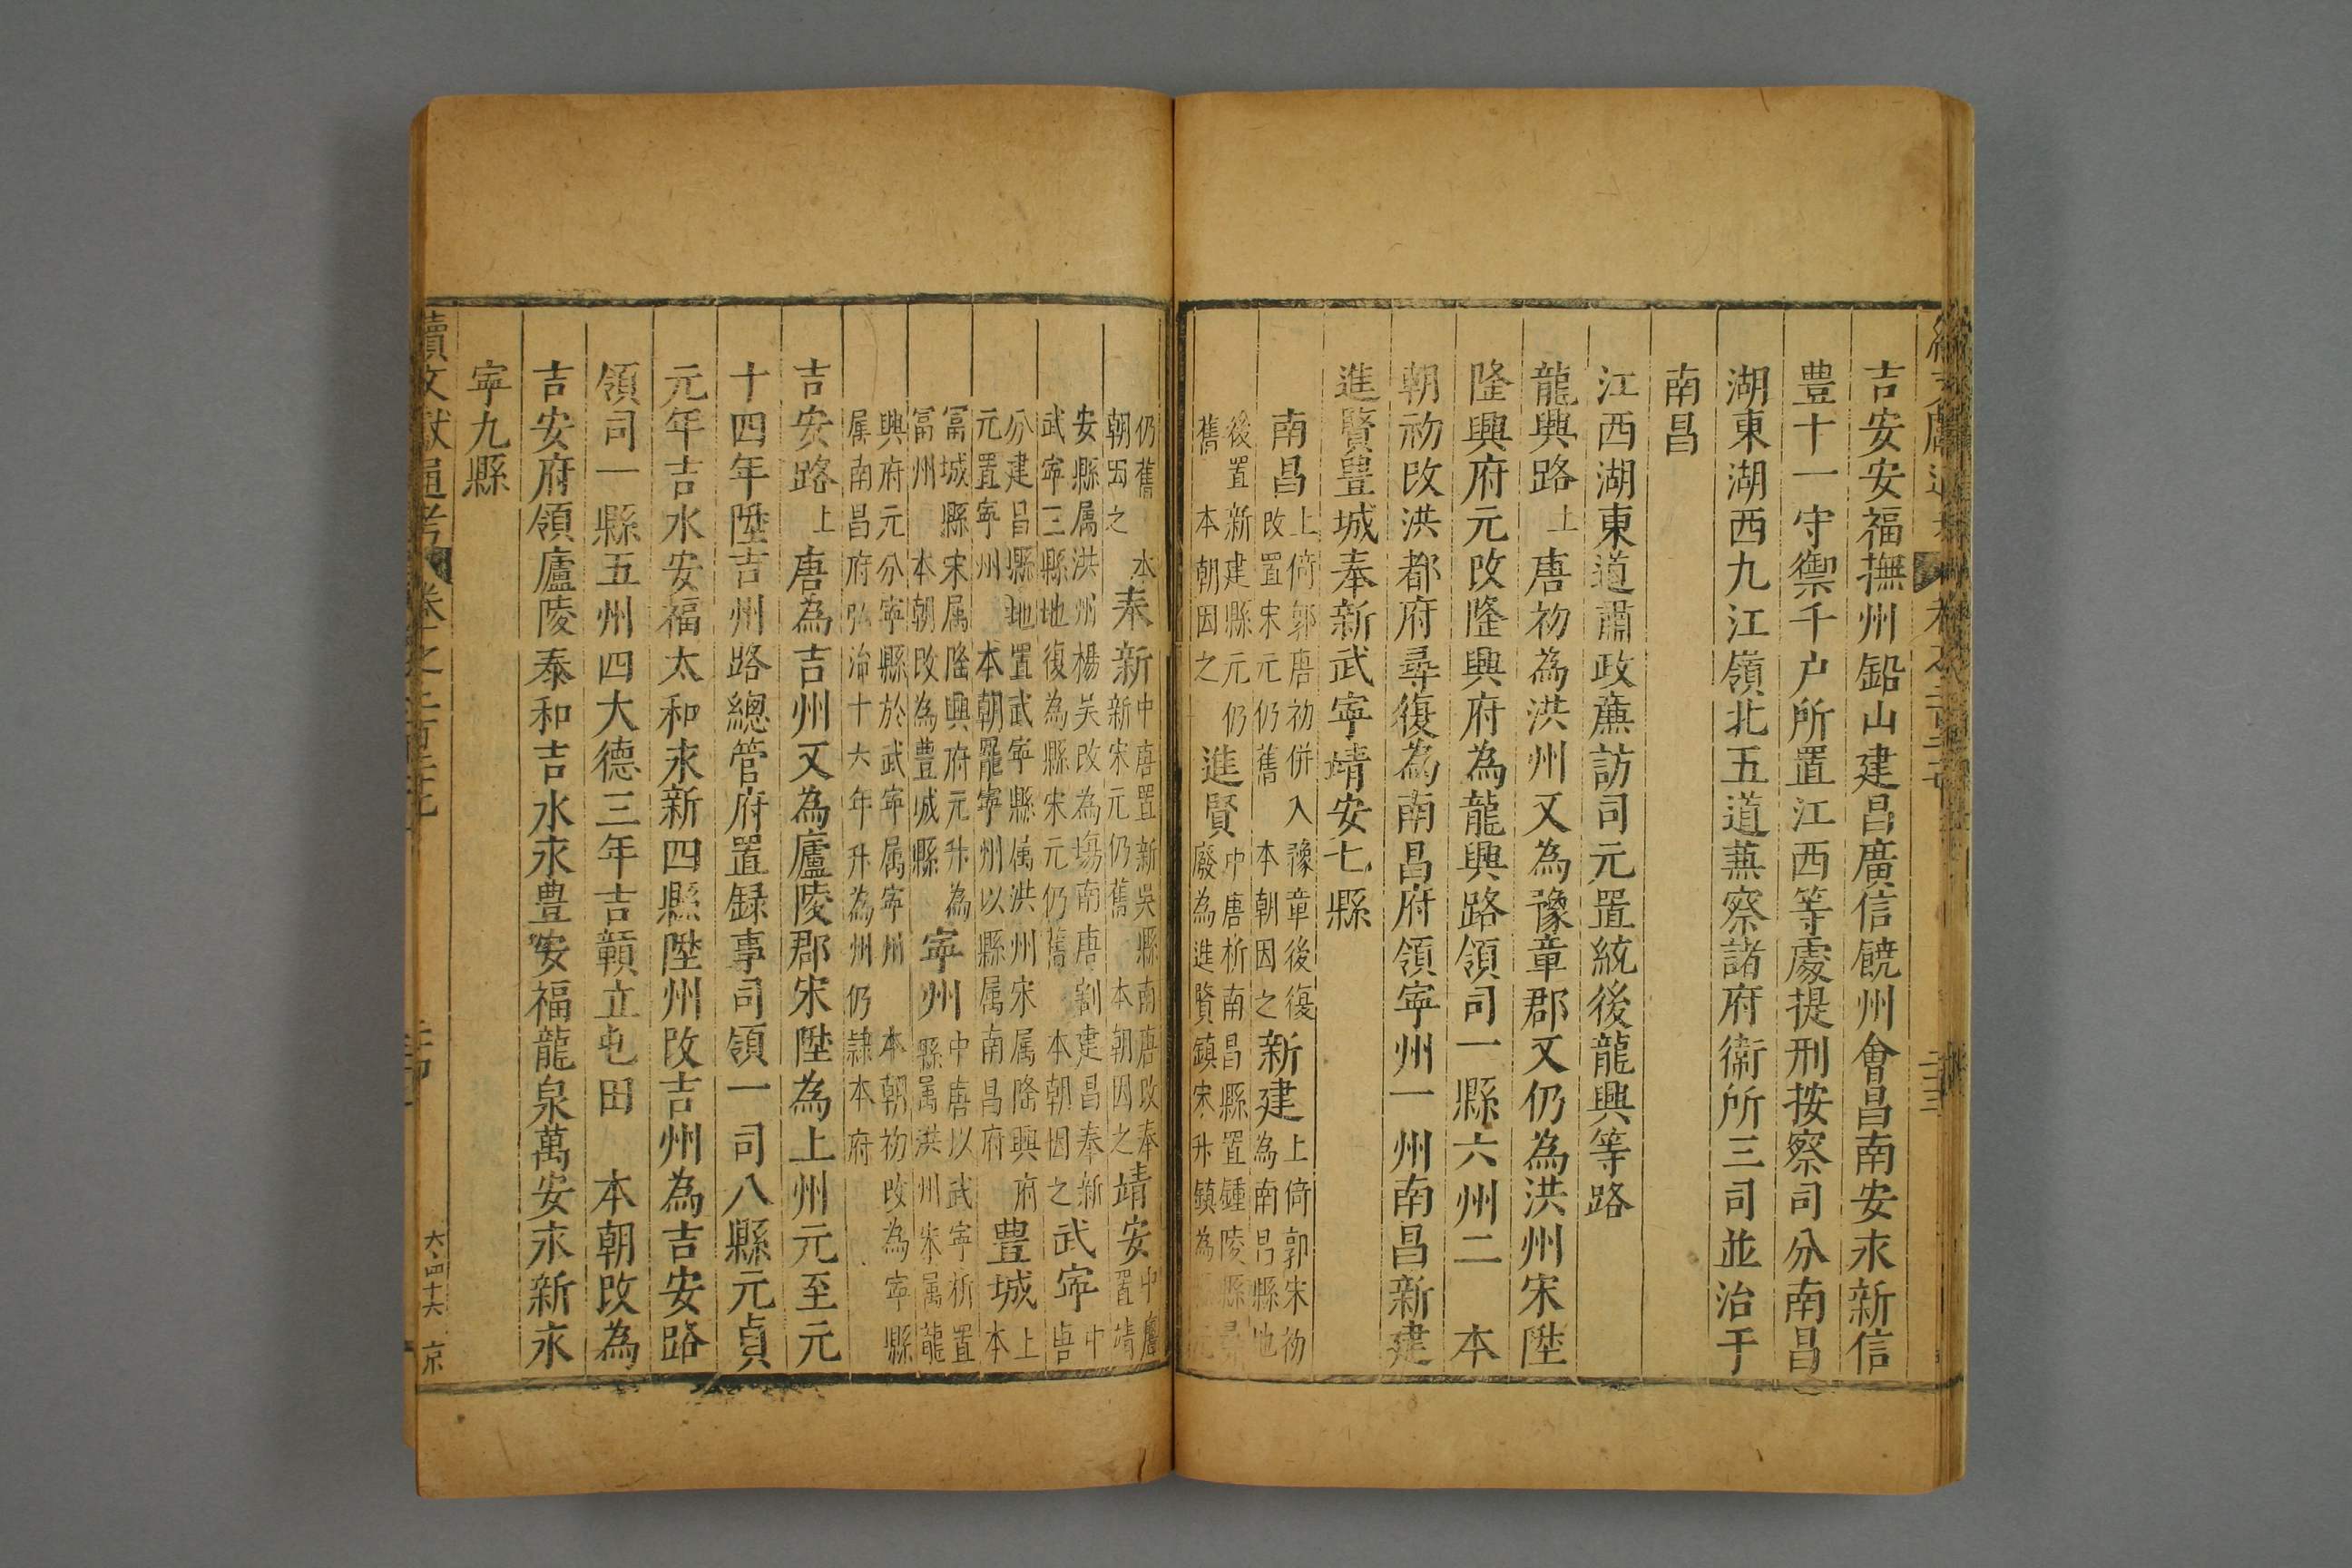 吉安安福撫州鉛山建昌廣信饒州會昌南安永新信
豊十一守禦千户所置江西等處提刑按察司分南昌
湖東湖西九江嶺北五道兼察諸府衛所三司並治于
南昌
江西湖東道肅政薦訪司元置統後龍興等路
龍興路上唐初為洪州又為豫章郡又仍為洪州宋陞
隆興府元改隆興府為龍興路領司一縣六州二　本
朝初改洪都府尋復為南昌府領寧州一州南昌新建
進賢豊城奉新武寧靖安七縣
南昌上倚郭唐初併入豫章後復
改置宋元仍舊　本朝因之新建上倚郭宋初
為南昌縣地
後置新建縣元仍
舊　本朝因之進賢中唐析南昌縣置鍾陵縣尋
廢為進賢鎮宋升鎮為
仍舊　本
朝因之奉新中唐置新吳縣南唐改奉
新宋元仍舊　本朝因之靖安中唐
置靖
安縣属洪州楊吴改為場南唐割建昌奉新
武寧三縣地復為縣宋元仍舊　本朝因之武寧中
唐
分建昌縣地置武寧縣属洪州宋属隆興府
元置寧州　本朝罷寧州以縣属南昌府豊城上
本
富城縣宋属隆興府元升為
富州　本朝改為豊城縣寧州中唐以武寧析置
縣属洪州宋属龍
興府元分寧縣於武寧属寧州　本朝初改為寧縣
属南昌府弘治十六年升為州仍隸本府
吉安路上唐為吉州又為廬陵郡宋陞為上州元至元
十四年陞吉州路總管府置録事司領一司八縣元貞
元年吉水安福太和永新四縣陞州改吉州為吉安路
領司一縣五州四大德三年吉贑立屯田　本朝改為
吉安府領廬陵泰和吉水永豊安福龍泉萬安永新永
寧九縣
續文獻通考
六四十六　京